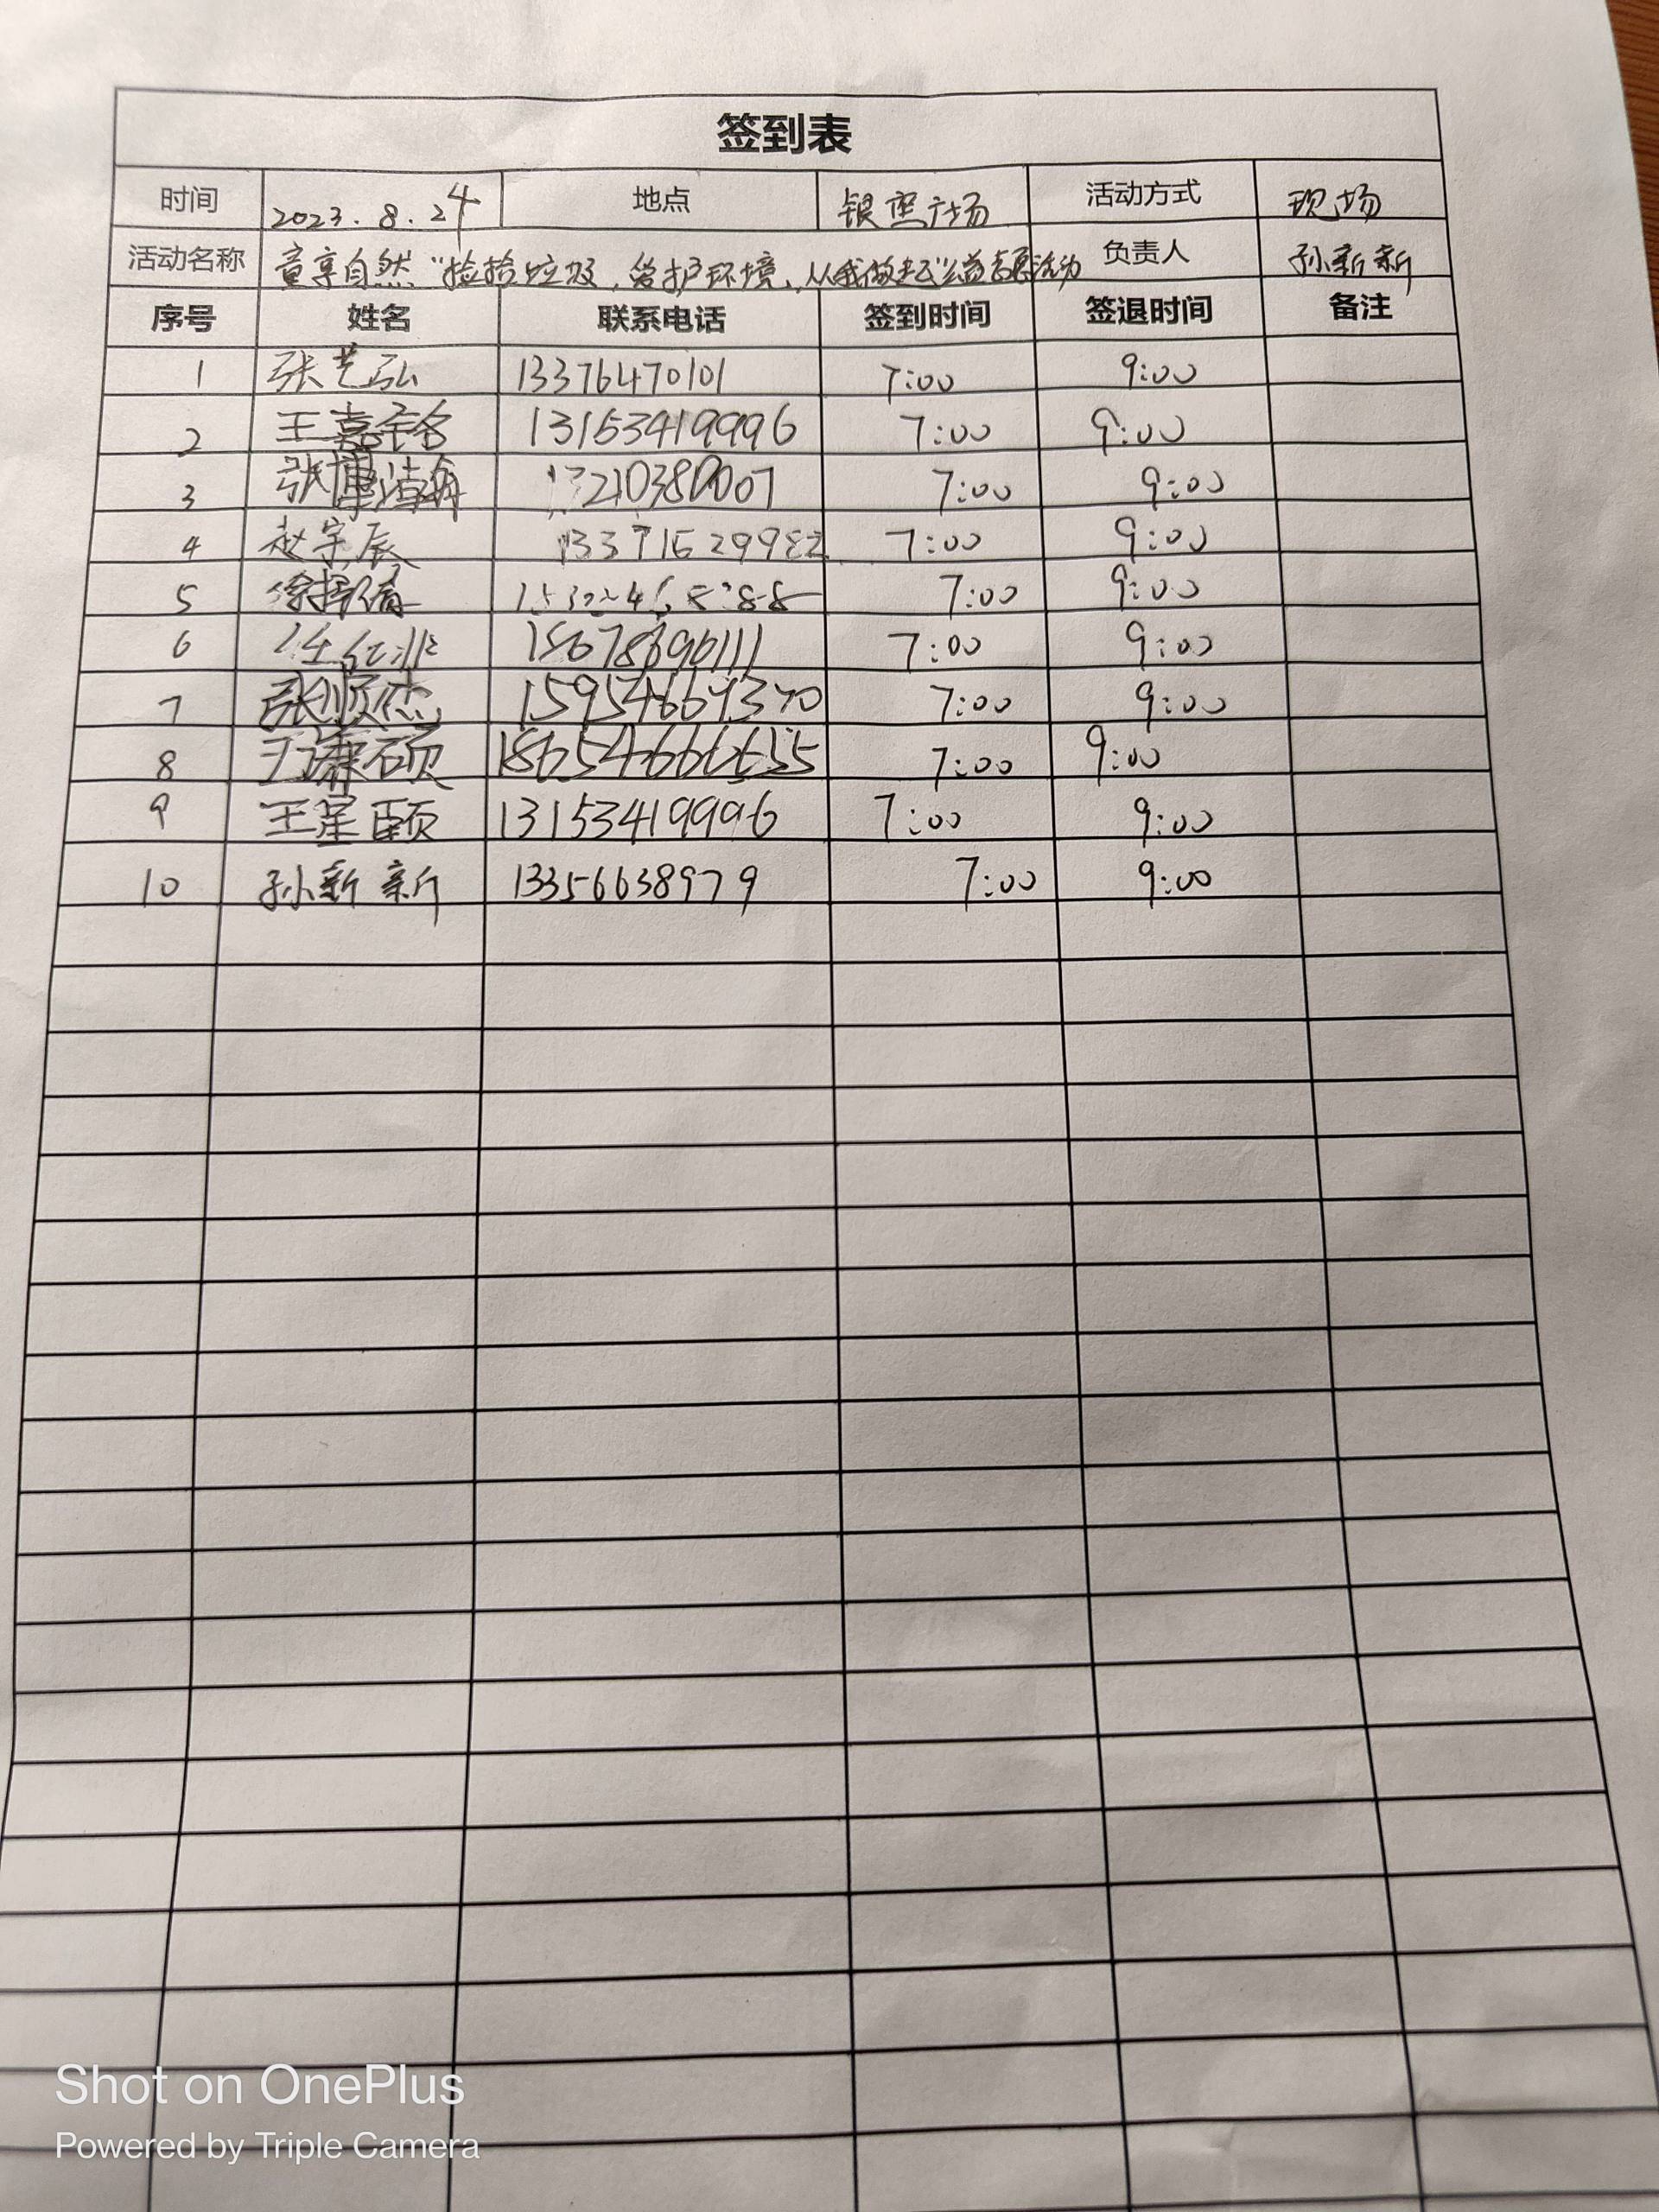 签到表
时间 2023.8.24 地点 银座广场 活动方式 现场
活动名称 童享自然"捡拾垃圾,爱护环境,从我做起"公益志愿活动 负责人 孙新新
序号 姓名 联系电话 签到时间 签退时间 备注
1 张艺弘 13376470101 7:00 9:00
2 王嘉铭 13153419996 7:00 9:00
3 张博 7:00 9:00
4 赵宗辰 7:00 9:00
5 7:00 9:00
6 18678696111 7:00 9:00
7 张顺杰 15954669370 7:00 9:00
8 7:00 9:00
9 王星颐 13153419996 7:00 9:00
10 孙新新 13356638979 7:00 9:00
Shot on OnePlus
Powered by Triple Camera